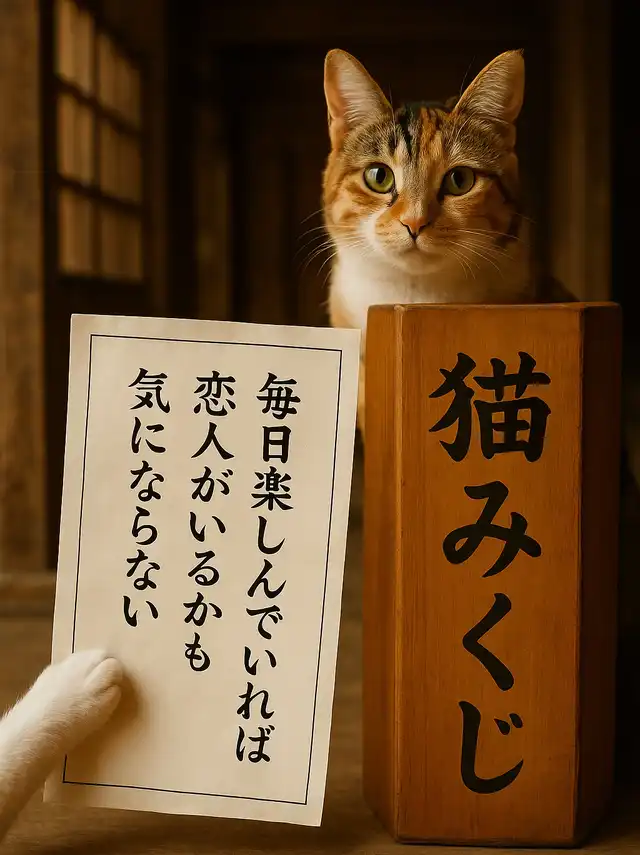 毎日楽しんでいれば
恋人がいるかも
気にならない
猫みくじ